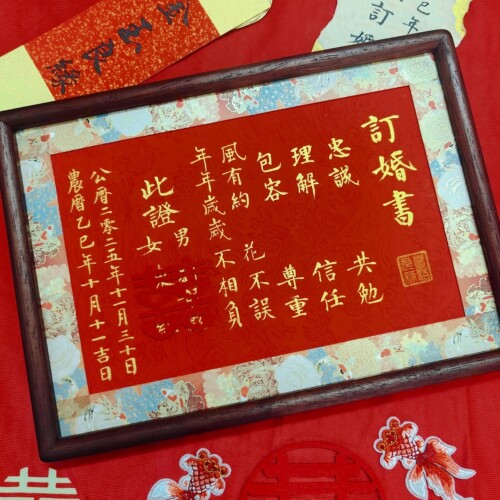 訂婚書
忠誠 共勉
理解 信任
包容 尊重
風有約 花不誤
年年歲歲不相負
此證 男
女
公曆二零二五年十一月三十日
農曆乙巳年十月十一吉日
金玉良緣
巳年
訂婚